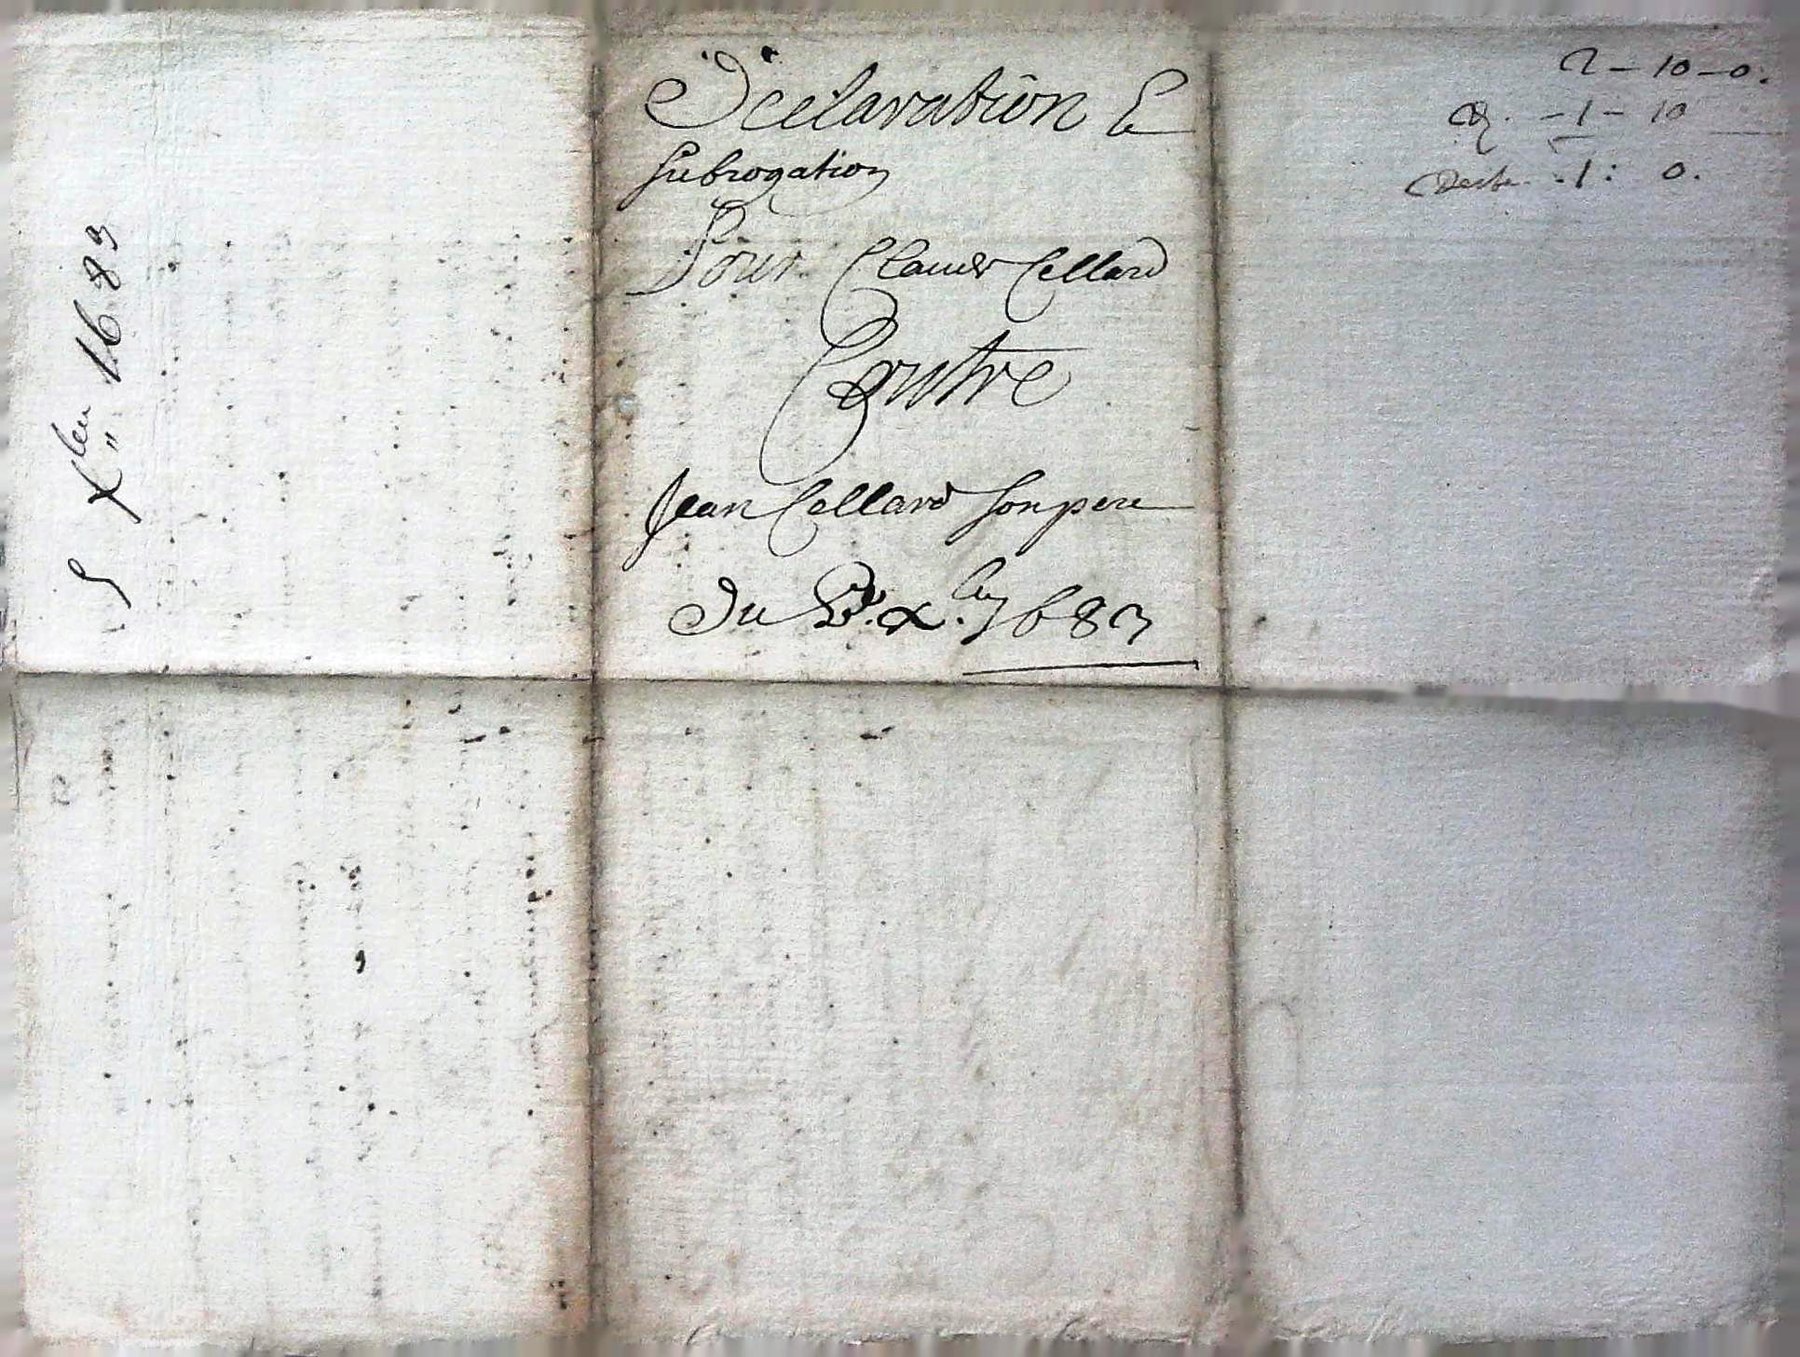 5 Xbre 1683
Declaration &
Subrogation
Pour Claude Cellard
Contre
Jean Cellard son pere
Du 5e. x.bre 1683
2 - 10 - 0.
R. - 1 - 10
Reste . 1 : 0.